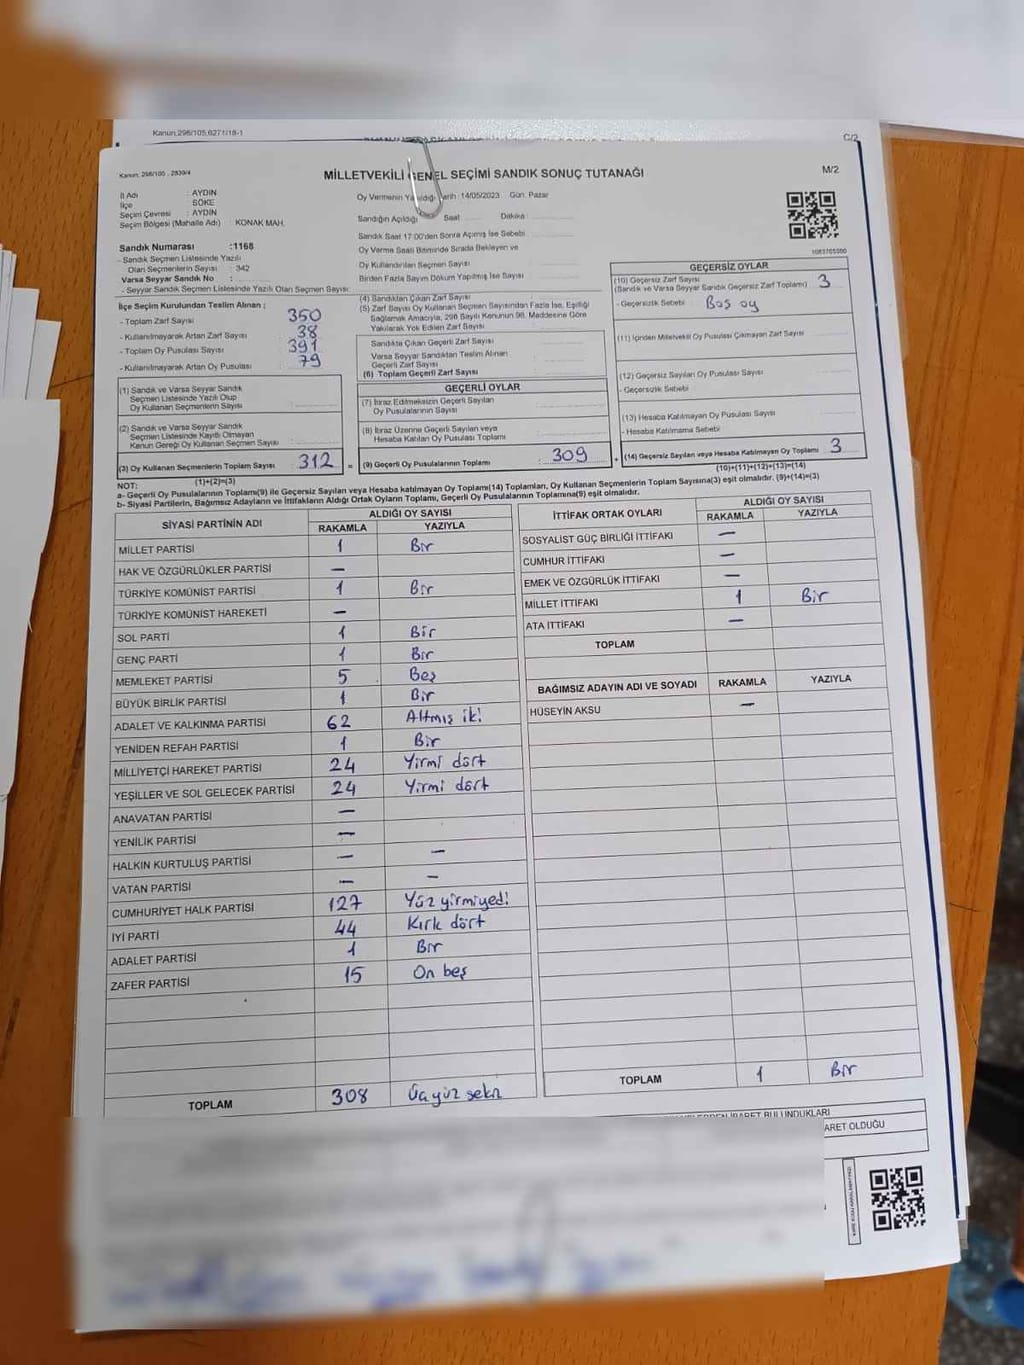 Kanun.298/105,6271/18-1
C/2
Kanun: 298/105 , 2839/4
MİLLETVEKİLİ GENEL SEÇİMİ SANDIK SONUÇ TUTANAĞI
M/2
İl Adı : AYDIN
İlçe : SÖKE
Seçim Çevresi : AYDIN
Seçim Bölgesi (Mahalle Adı) : KONAK MAH.
Sandık Numarası :1168
- Sandık Seçmen Listesinde Yazılı
Olan Seçmenlerin Sayısı : 342
Varsa Seyyar Sandık No :
- Seyyar Sandık Seçmen Listesinde Yazılı Olan Seçmen Sayısı:
Oy Vermenin Yapıldığı Tarih :14/05/2023 Gün: Pazar
Sandığın Açıldığı Saat Dakika :
Sandık Saat 17:00'den Sonra Açılmış İse Sebebi
Oy Verme Saati Bitiminde Sırada Bekleyen ve
Oy Kullandırılan Seçmen Sayısı
Birden Fazla Sayım Döküm Yapılmış İse Sayısı
İlçe Seçim Kurulundan Teslim Alınan ;
- Toplam Zarf Sayısı : 350
- Kullanılmayarak Artan Zarf Sayısı : 38
- Toplam Oy Pusulası Sayısı : 391
- Kullanılmayarak Artan Oy Pusulası : 79
(1) Sandık ve Varsa Seyyar Sandık
Seçmen Listesinde Yazılı Olup
Oy Kullanan Seçmenlerin Sayısı :
(2) Sandık ve Varsa Seyyar Sandık
Seçmen Listesinde Kayıtlı Olmayan
Kanun Gereği Oy Kullanan Seçmen Sayısı :
(3) Oy Kullanan Seçmenlerin Toplam Sayısı : 312
(1)+(2)=(3)
(4) Sandıktan Çıkan Zarf Sayısı
(5) Zarf Sayısı Oy Kullanan Seçmen Sayısından Fazla İse, Eşitliği
Sağlamak Amacıyla, 298 Sayılı Kanunun 98. Maddesine Göre
Yakılarak Yok Edilen Zarf Sayısı
Sandıkta Çıkan Geçerli Zarf Sayısı
Varsa Seyyar Sandıktan Teslim Alınan
Geçerli Zarf Sayısı
(6) Toplam Geçerli Zarf Sayısı
GEÇERLİ OYLAR
(7) İtiraz Edilmeksizin Geçerli Sayılan
Oy Pusulalarının Sayısı
(8) İtiraz Üzerine Geçerli Sayılan veya
Hesaba Katılan Oy Pusulası Toplamı
= (9) Geçerli Oy Pusulalarının Toplamı : 309
GEÇERSİZ OYLAR
(10) Geçersiz Zarf Sayısı
(Sandık ve Varsa Seyyar Sandık Geçersiz Zarf Toplamı) : 3
- Geçersizlik Sebebi : Boş oy
(11) İçinden Milletvekili Oy Pusulası Çıkmayan Zarf Sayısı
(12) Geçersiz Sayılan Oy Pusulası Sayısı
- Geçersizlik Sebebi
(13) Hesaba Katılmayan Oy Pusulası Sayısı
- Hesaba Katılmama Sebebi
+ (14) Geçersiz Sayılan veya Hesaba Katılmayan Oy Toplamı : 3
(10)+(11)+(12)+(13)=(14)
NOT:
a- Geçerli Oy Pusulalarının Toplamı(9) ile Geçersiz Sayılan veya Hesaba katılmayan Oy Toplamı(14) Toplamları, Oy Kullanan Seçmenlerin Toplam Sayısına(3) eşit olmalıdır. (9)+(14)=(3)
b- Siyasi Partilerin, Bağımsız Adayların ve İttifakların Aldığı Ortak Oyların Toplamı, Geçerli Oy Pusulalarının Toplamına(9) eşit olmalıdır.
SİYASİ PARTİNİN ADI ALDIĞI OY SAYISI
RAKAMLA YAZIYLA
MİLLET PARTİSİ 1 Bir
HAK VE ÖZGÜRLÜKLER PARTİSİ —
TÜRKİYE KOMÜNİST PARTİSİ 1 Bir
TÜRKİYE KOMÜNİST HAREKETİ —
SOL PARTİ 1 Bir
GENÇ PARTİ 1 Bir
MEMLEKET PARTİSİ 5 Beş
BÜYÜK BİRLİK PARTİSİ 1 Bir
ADALET VE KALKINMA PARTİSİ 62 Altmış iki
YENİDEN REFAH PARTİSİ 1 Bir
MİLLİYETÇİ HAREKET PARTİSİ 24 Yirmi dört
YEŞİLLER VE SOL GELECEK PARTİSİ 24 Yirmi dört
ANAVATAN PARTİSİ —
YENİLİK PARTİSİ —
HALKIN KURTULUŞ PARTİSİ — —
VATAN PARTİSİ — —
CUMHURİYET HALK PARTİSİ 127 Yüz yirmiyedi
İYİ PARTİ 44 Kırk dört
ADALET PARTİSİ 1 Bir
ZAFER PARTİSİ 15 On beş
TOPLAM 308 Üçyüz sekiz
İTTİFAK ORTAK OYLARI ALDIĞI OY SAYISI
RAKAMLA YAZIYLA
SOSYALİST GÜÇ BİRLİĞİ İTTİFAKI —
CUMHUR İTTİFAKI —
EMEK VE ÖZGÜRLÜK İTTİFAKI —
MİLLET İTTİFAKI 1 Bir
ATA İTTİFAKI —
TOPLAM
BAĞIMSIZ ADAYIN ADI VE SOYADI RAKAMLA YAZIYLA
HÜSEYİN AKSU —
TOPLAM 1 Bir
BULUNDUKLARI
ARET OLDUĞU